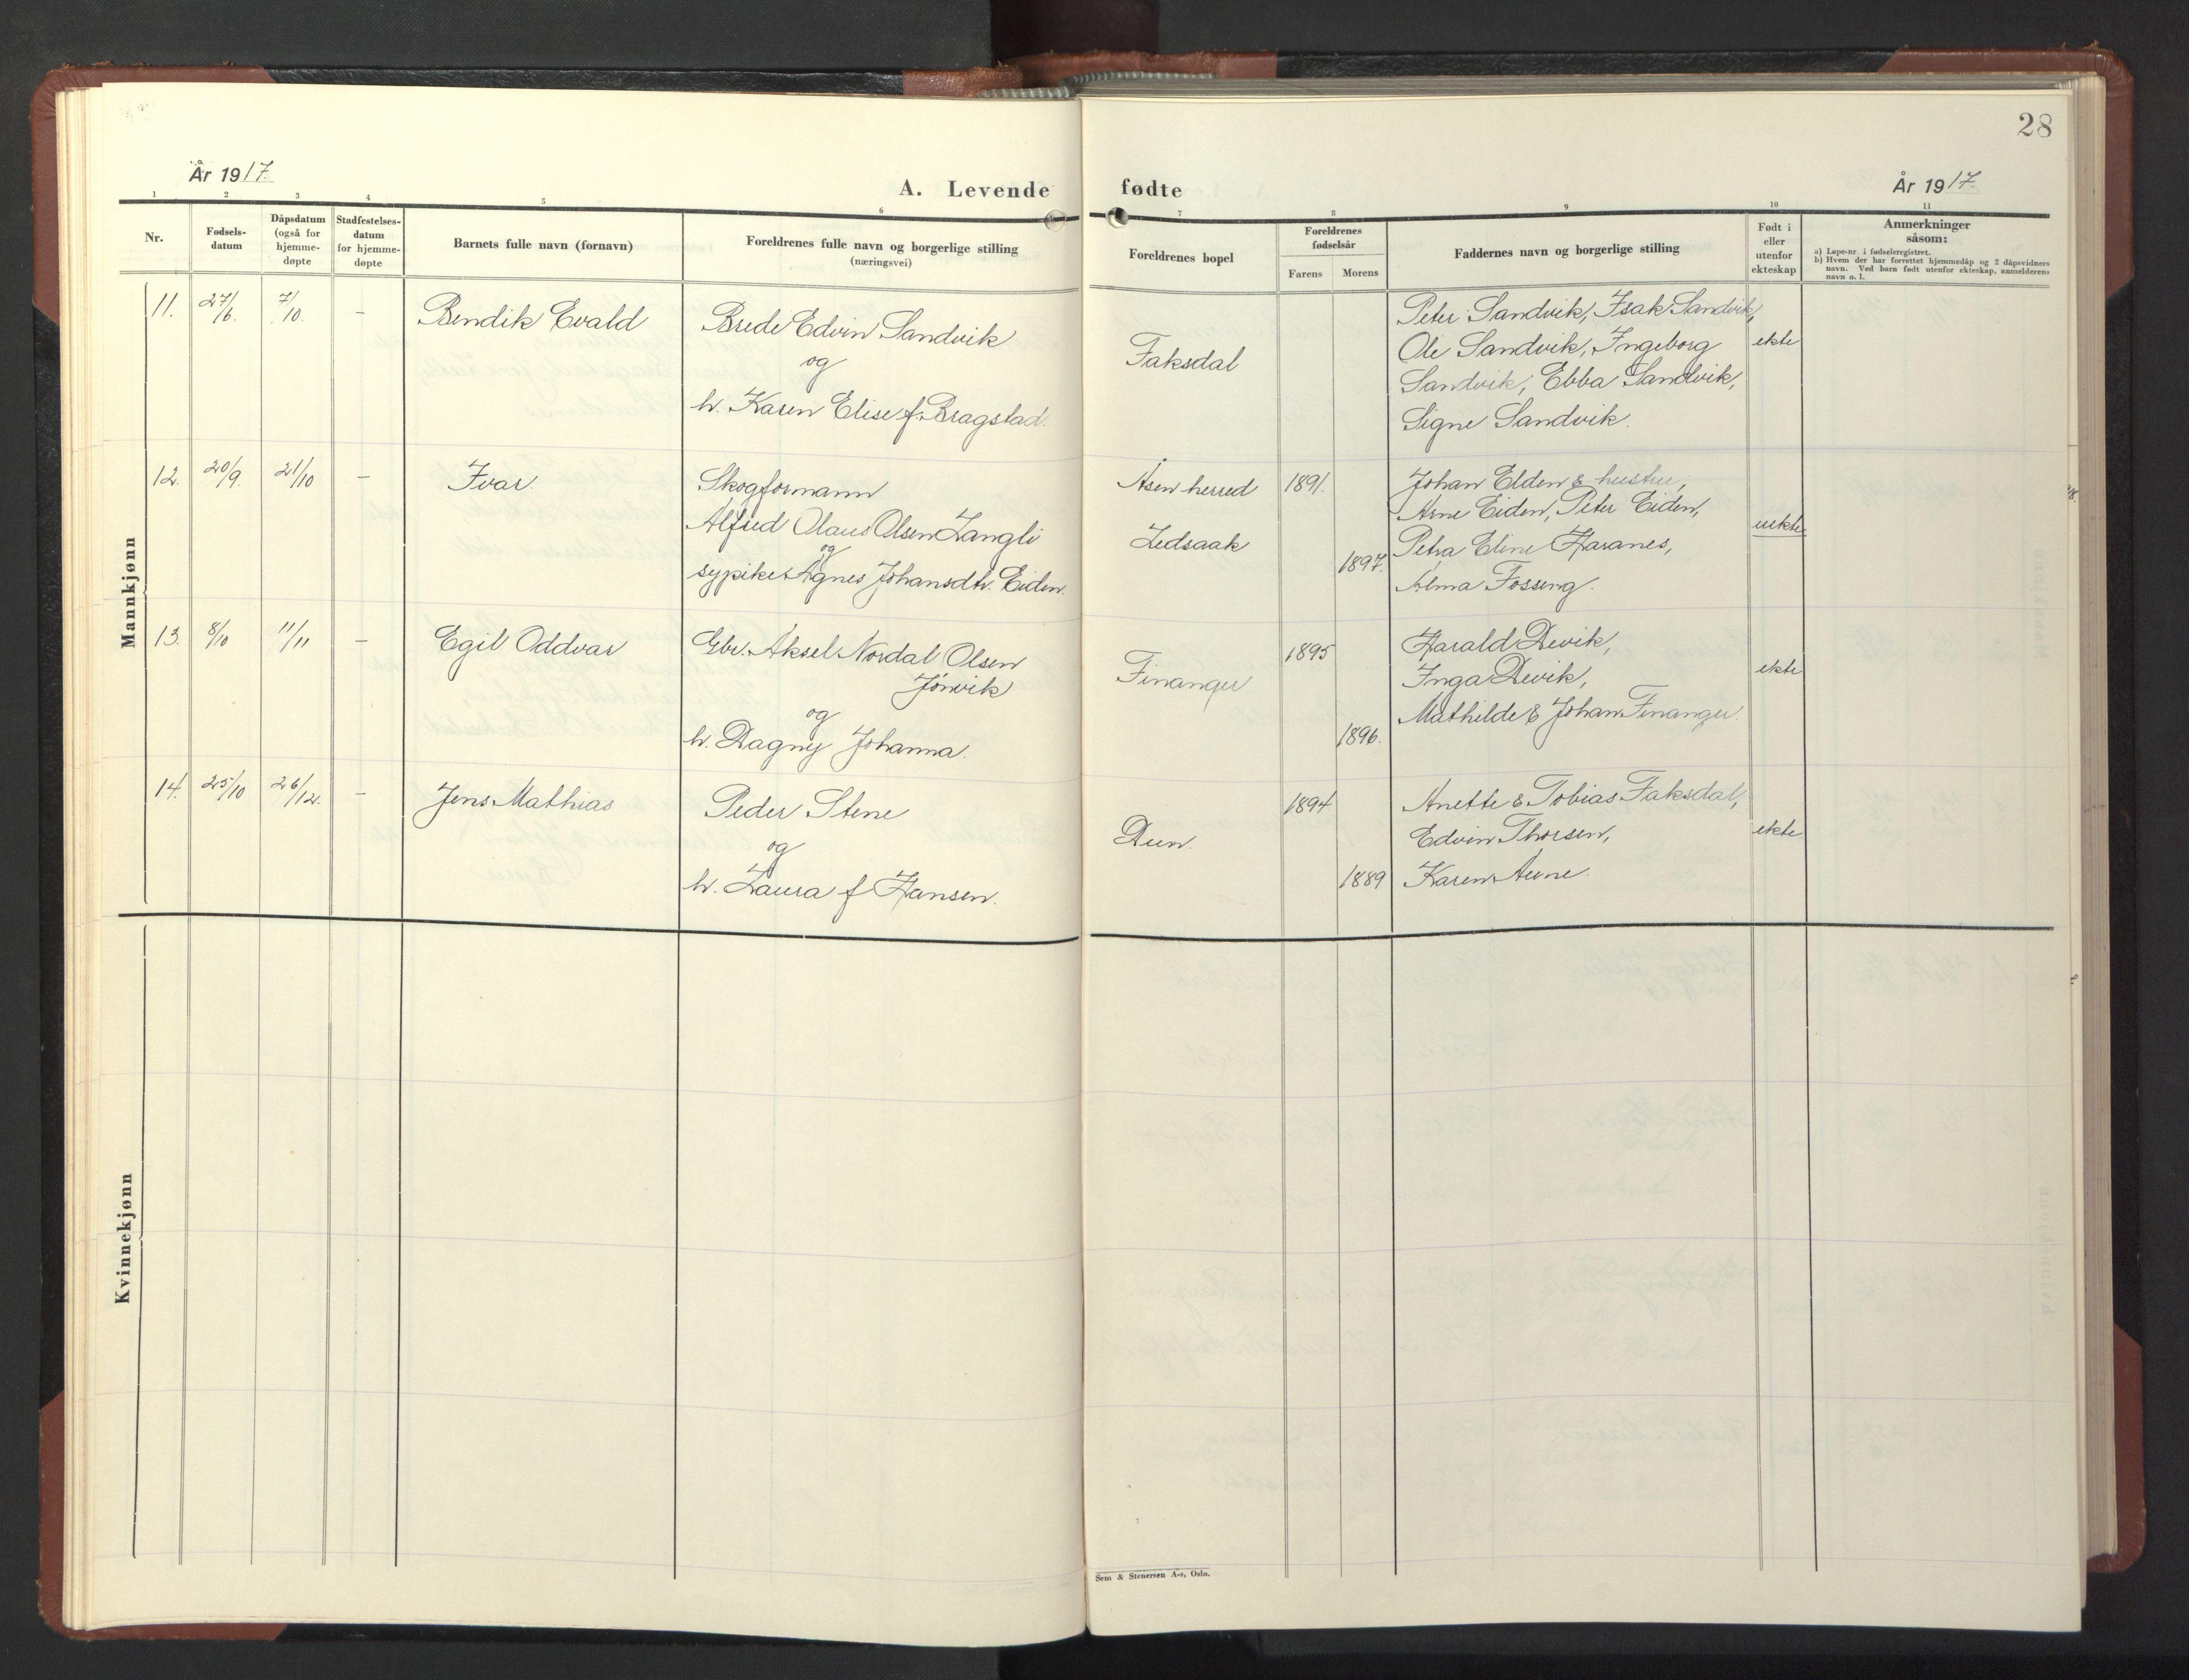 28
År 1917.
A. Levende
fødte
År 1917.
1 2 3 4 5 6 7 8 9 10 11
Nr.
Fødsels-
datum
Dåpsdatum
(også for
hjemme-
døpte
Stadfestelses-
datum
for hjemme-
døpte
Barnets fulle navn (fornavn)
Foreldrenes fulle navn og borgerlige stilling
(næringsvei)
Foreldrenes bopel
Foreldrenes
fødselsår
Farens Morens
Faddernes navn og borgerlige stilling
Født i
eller
utenfor
ekteskap
Anmerkninger
såsom:
a) Løpe-nr. i fødselsregistret.
b) Hvem der har forrettet hjemmedåp og 2 dåpsvidners
navn. Ved barn født utenfor ekteskap, anmelderens
navn o. l.
Mannkjønn
11. 27/6. 7/10. – Bendik Evald
Brede Edvin Sandvik
og
h. Karen Elise f. Bragstad.
Faksdal
Peter Sandvik, Isak Sandvik,
Ole Sandvik, Ingeborg
Sandvik, Ebba Sandvik,
Signe Sandvik.
ekte
12. 20/9. 21/10 – Ivar.
Skogformann
Alfred Olaus Olsen Langli
og
sypike Agnes Johansdtr. Eiden.
Åsen herred
Ledsaak
1891.
1897.
Johan Elden & hustru,
Arne Eiden, Peter Eiden,
Petra Eline Haranes,
Alma Fosseng.
uekte
13. 8/10 11/11 – Egil Oddvar
Gbr. Aksel Nordal Olsen
Jönvik
og
h. Dagny Johanna.
Finanger
1895
1896.
Harald Devik,
Inga Devik,
Mathilde & Johan Finanger.
ekte
14. 25/10 26/12. – Jens Mathias
Peder Stene
og
h. Laura f Hansen.
Dun.
1894
1889
Anette & Tobias Faksdal,
Edvin Thorsen,
Karen Aune.
ekte
Kvinnekjønn
Sem & Stenersen A-s, Oslo.